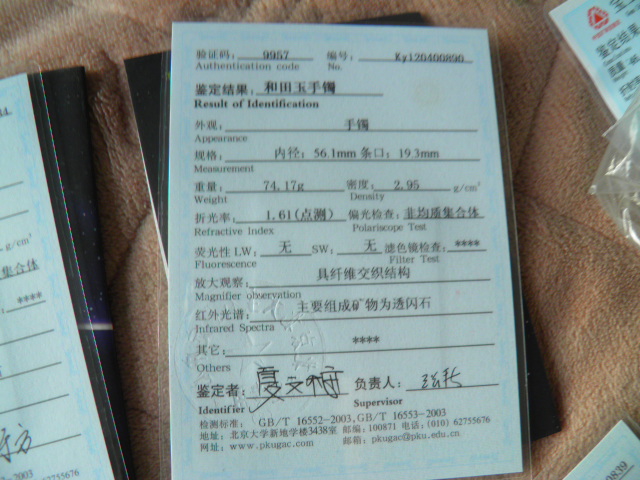 验证码: 9957 编号: Ky120400890
Authentication code No.
鉴定结果: 和田玉手镯
Result of Identification
外观: 手镯
Appearance
规格: 内径: 56.1mm 条口: 19.3mm
Measurement
重量: 74.17g 密度: 2.95 g/cm³
Weight Density
折光率: 1.61(点测) 偏光检查: 非均质集合体
Refractive Index Polariscope Test
荧光性 LW: 无 SW: 无 滤色镜检查: ****
Fluorescence Filter Test
放大观察: 具纤维交织结构
Magnifier observation
红外光谱: 主要组成矿物为透闪石
Infrared Spectra
其它: ****
Others
鉴定者: 负责人:
Identifier Supervisor
检测标准: GB/T 16552-2003,GB/T 16553-2003
地址: 北京大学新地学楼3438室 邮编: 100871 电话: (010) 62755676
网址: www.pkugac.com 邮箱: pkugac@pku.edu.cn
g/cm³
质集合体
****
-2003
62755676
鉴定结果